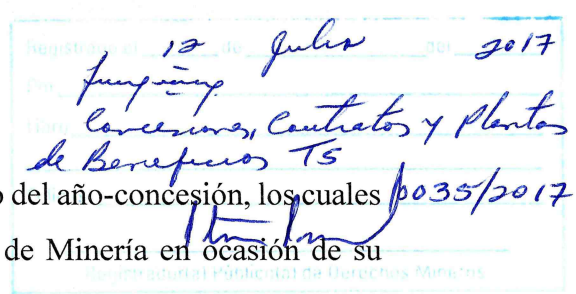 Registrado el 12 de Julio del 2017
Concesiones, Contratos y Plantas
de Beneficios TS
o del año-concesión, los cuales 0035/2017
de Minería en ocasión de su
Público de Derechos Mineros